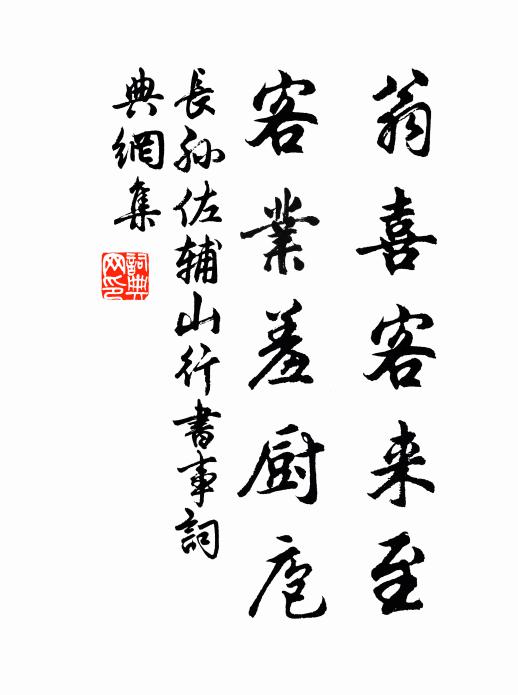 翁喜客来至
客業羞厨庖
長孙佐輔山行書事詞
典網集
詞典
网印